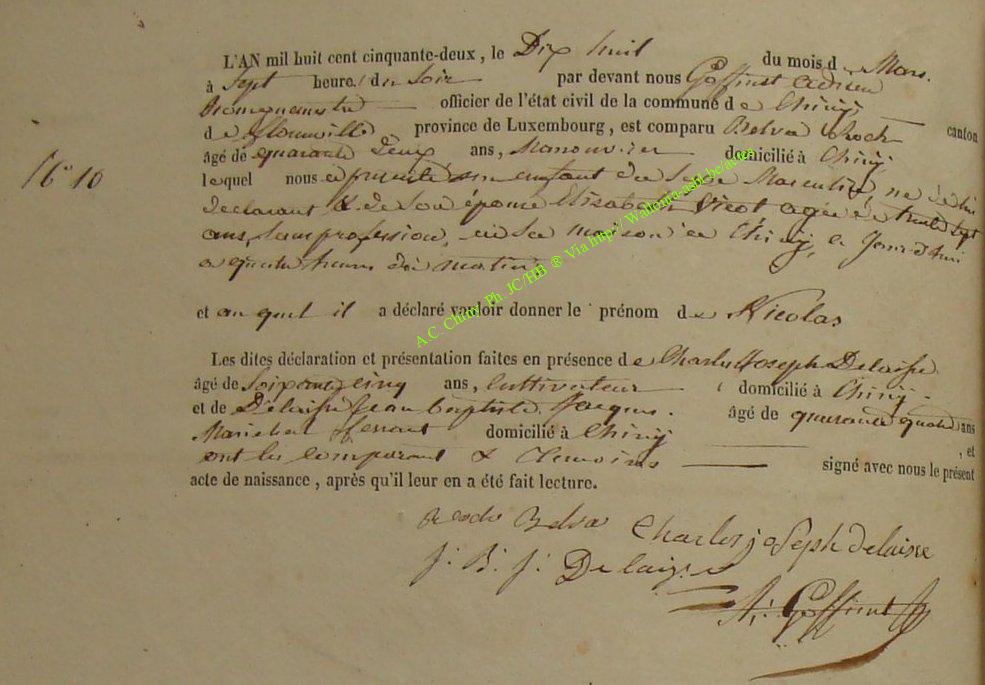 L'AN mil huit cent cinquante-deux, le Dix huit du mois de Mars.
à Sept heure du Soir par devant nous Goffinet Adrien
Bourguemestre officier de l'état civil de la commune de Chiny canton
de Florenville province de Luxembourg, est comparu Belva Roch
âgé de quarante deux ans, Manouvrier domicilié à Chiny
N° 10
lequel nous a présenté un enfant du Sexe Masculin, né de lui
déclarant & de Son épouse Elisabeth agée de trente Sept
ans, Sans profession, en Sa maison à Chiny, a Jourd'hui
a quatre heures du matin
et au quel il a déclaré vouloir donner le prénom de Nicolas
Les dites déclaration et présentation faites en présence de Charles Joseph Delaisse
âgé de Soixante cinq ans, Cultivateur domicilié à Chiny.
et de Delaisse Jean Baptiste Jacques. âgé de quarante quatre ans
Maréchal ferrant domicilié à Chiny , et
ont les Comparant & témoins signé avec nous le présent
acte de naissance, après qu'il leur en a été fait lecture.
Roch Belva Charles joseph delaisse
J. B. J. Delaisse
A. Goffinet
A.C. Chiny Ph. JC/HB ® Via http:// Wallonia-asbl.be/actes